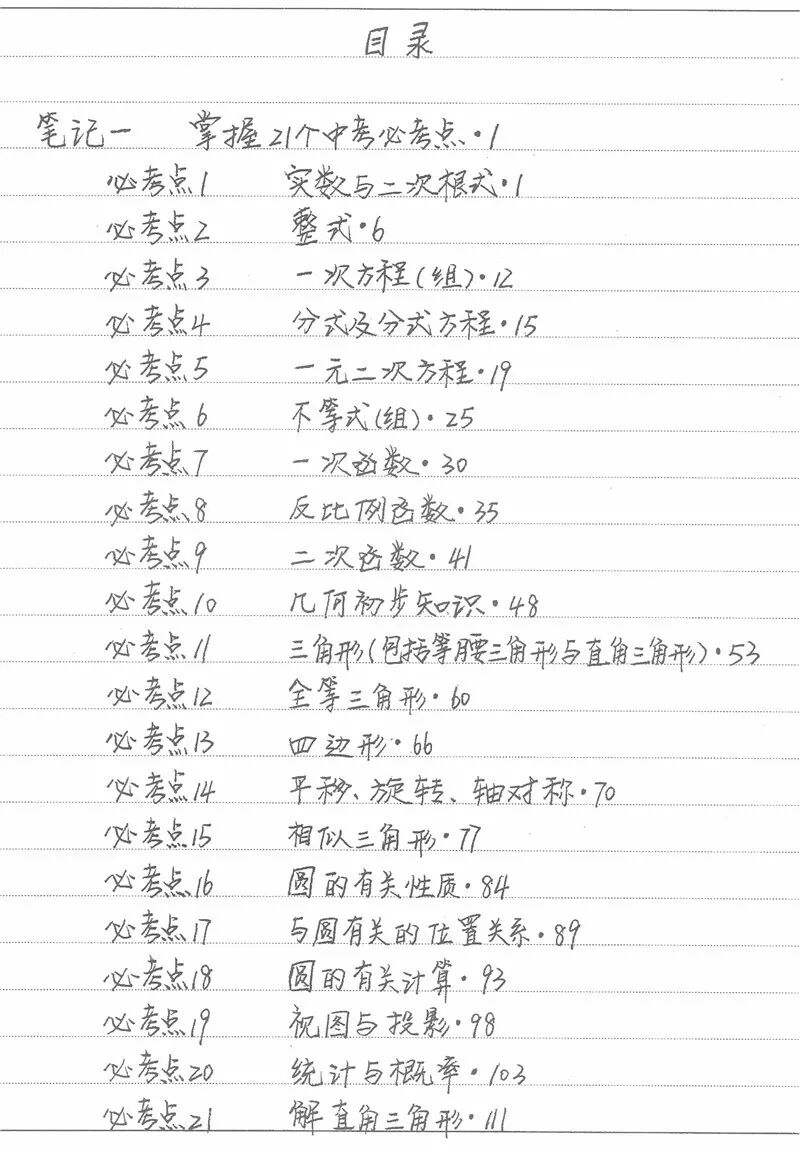 目录
笔记一 掌握21个中考必考点·1
必考点1 实数与二次根式·1
必考点2 整式·6
必考点3 一次方程(组)·12
必考点4 分式及分式方程·15
必考点5 一元二次方程·19
必考点6 不等式(组)·25
必考点7 一次函数·30
必考点8 反比例函数·35
必考点9 二次函数·41
必考点10 几何初步知识·48
必考点11 三角形(包括等腰三角形与直角三角形)·53
必考点12 全等三角形·60
必考点13 四边形·66
必考点14 平移、旋转、轴对称·70
必考点15 相似三角形·77
必考点16 圆的有关性质·84
必考点17 与圆有关的位置关系·89
必考点18 圆的有关计算·93
必考点19 视图与投影·98
必考点20 统计与概率·103
必考点21 解直角三角形·111